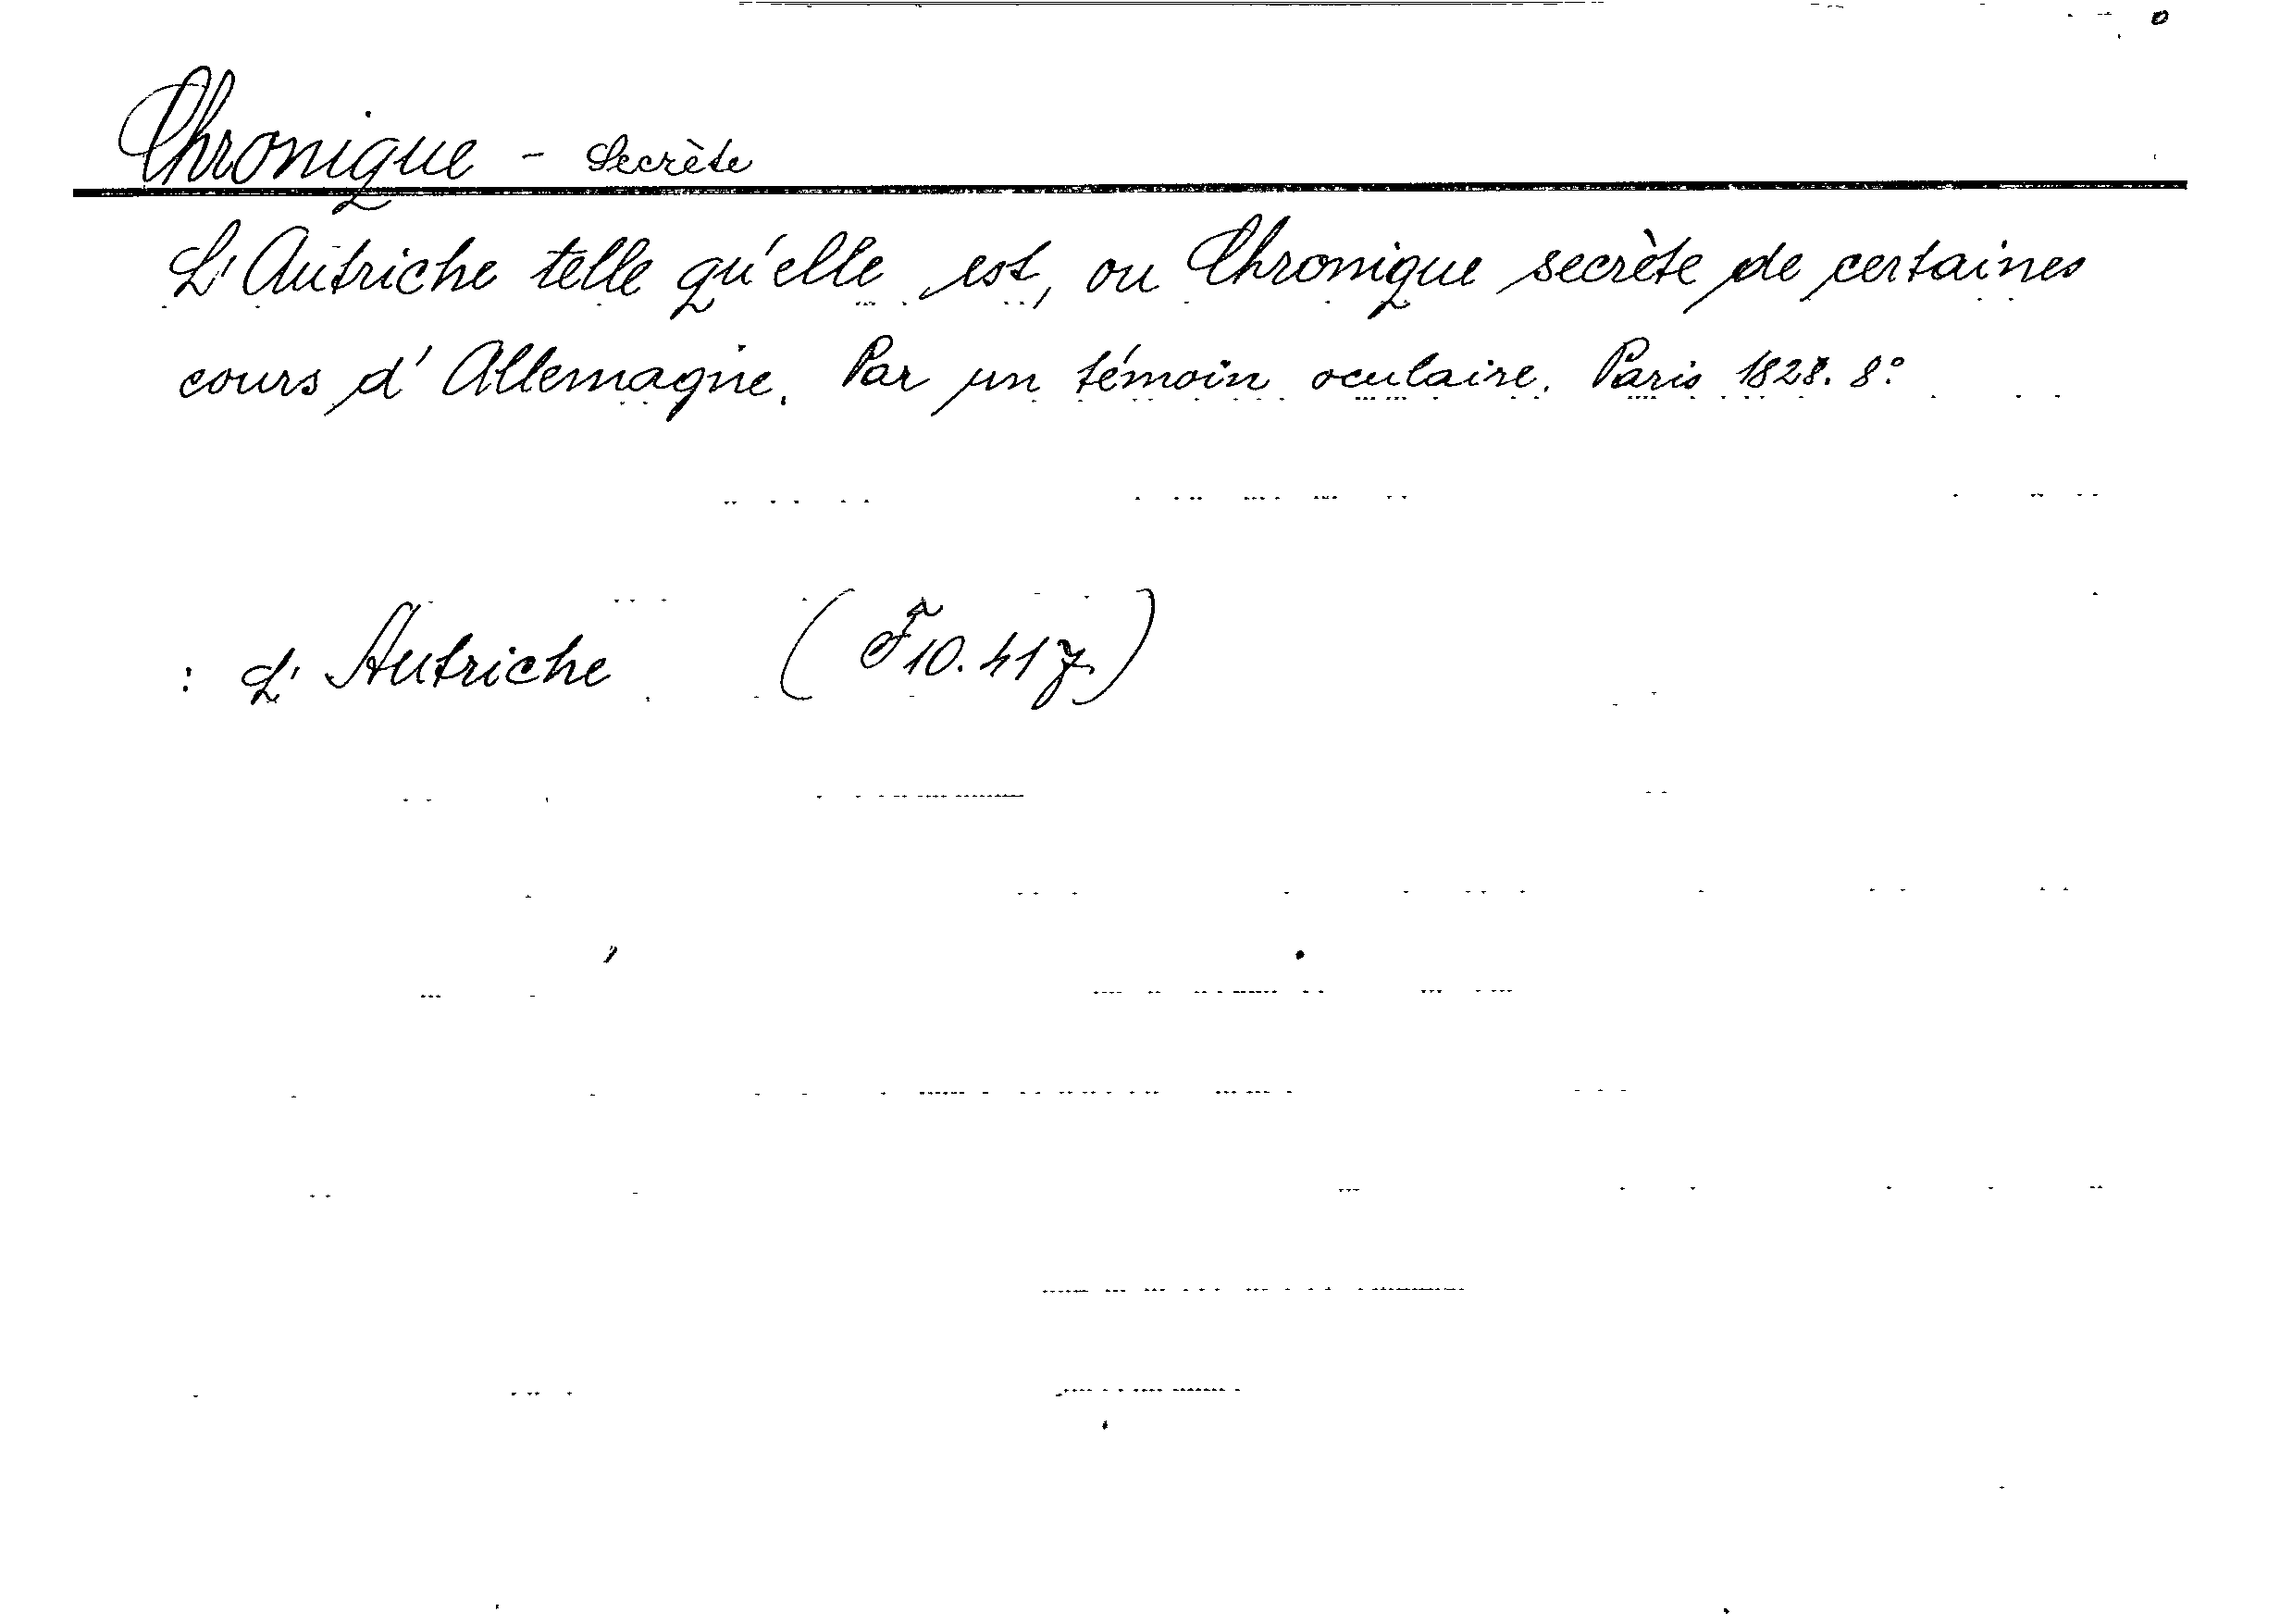 Chronique - Secrète
L'Autriche telle qu'elle est, ou Chronique secrète de certaines
cours d'Allemagne. Par un témoin oculaire. Paris 1828. 8°
: L'Autriche (F 10.417)